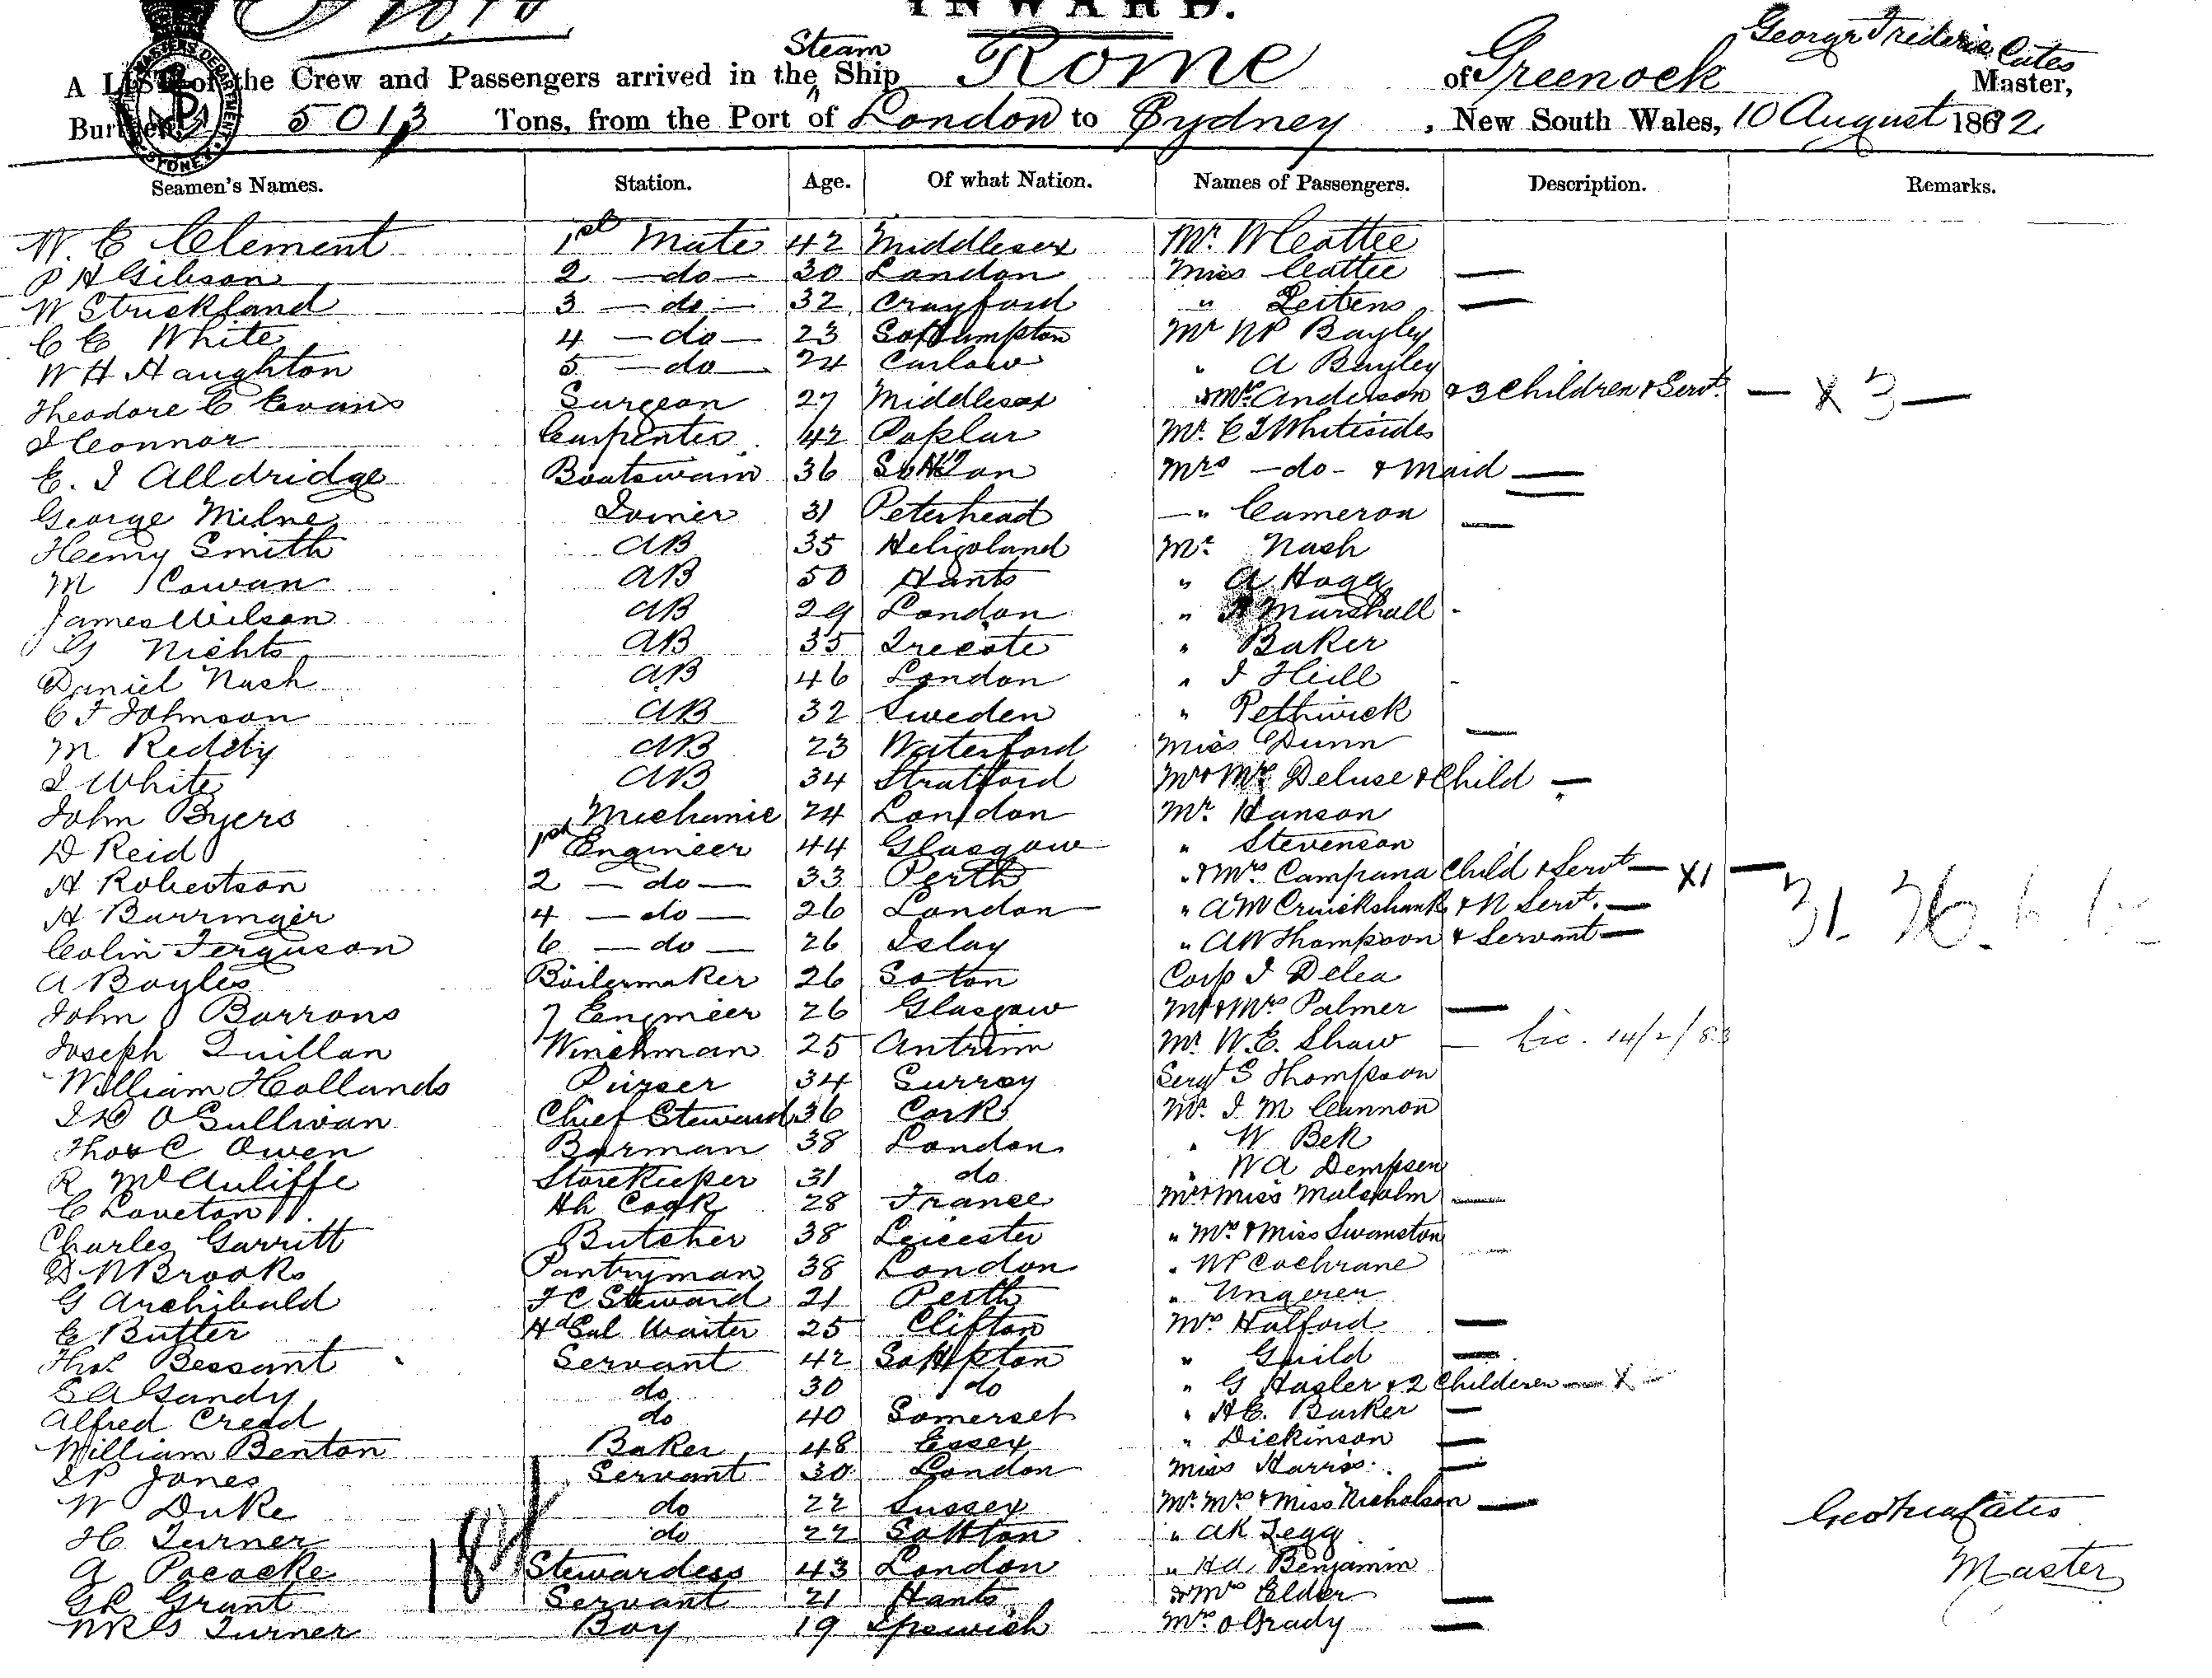 INWARD.
A LIST of the Crew and Passengers arrived in the Steam Ship Rome of Greenock George Frederic Cates Master,
Burthen 5013 Tons, from the Port of London to Sydney, New South Wales, 10 August 1882
Seamen's Names. Station. Age. Of what Nation. Names of Passengers. Description. Remarks.
W. C Clement 1st Mate 42 Middlesex Mr. W Cattee
P H Gibson 2 — do — 30 London Miss Cattee —
W Strickland 3 — do — 32 Crayford " Leitens —
C C White 4 — do — 23 Sothampton Mr W P Bayley
W H Haughton 5 — do — 24 Carlow " A Bayley
Theodore C Evans Surgeon 27 Middlesex " & Mrs Anderson & 3 Children & Servt. — X 3 —
J Connor Carpenter 42 Poplar Mr. C J Whitesides
E. J Alldridge Boatswain 36 Sothton Mrs — do — & Maid —
George Milne Joiner 31 Peterhead — " Cameron —
Henry Smith AB 35 Heligoland Mr. Nash
M Cowan AB 50 Hants " A Hogg
James Wilson AB 29 London " Marshall
G Nichts AB 35 Trieste " Baker
Daniel Nash AB 46 London " J Hill
C F Johnson AB 32 Sweden " Pethwick
M Reddy AB 23 Waterford Miss Dunn —
J White AB 34 Stratford Mr & Mrs Deluse & Child —
John Byers Mechanic 24 London Mr. Hanson
D Reid 1st Engineer 44 Glasgow " Stevenson
A Robertson 2 — do — 33 Perth " & Mrs. Campana Child & Servt — X1 —
H Barringer 4 — do — 26 London " A W Cruickshank & N Servt. —
Colin Ferguson 6 — do — 26 Islay " A W Thompson & Servant —
A Bayles Boilermaker 26 Soton Corp J Delea
John Barrons 7 Engineer 26 Glasgow Mr & Mrs Palmer —
Joseph Quillan Winchman 25 Antrim Mr W. E. Shaw — Lic. 14/2/83
William Hollands Purser 34 Surrey Sergt S Thompson
J D O'Sullivan Chief Steward 36 Cork Mr. J M Cannon
Thos C Owen Barman 38 London " W Bek
R McAuliffe Storekeeper 31 do " W A Dempsen
C Loveton Hh Cook 28 France Mr & Miss Malcolm —
Charles Garritt Butcher 38 Leicester " Mrs & Miss Swanston
D N Brooks Pantryman 38 London " W P Cochrane
G Archibald F C Steward 21 Perth " Ungeren
C Butter Hd Sal Waiter 25 Clifton Mrs Halford —
Thos. Bessant Servant 42 Sothpton " Guild —
E A Gandy do 30 do " G Hasler & 2 Childeren — X —
Alfred Creed do 40 Somerset " H E. Barker —
William Benton Baker 48 Essex " Dickinson —
J P Jones Servant 30 London Miss Harris. —
W Duke do 22 Sussex Mr. Mrs. & Miss Nicholson —
H Turner do 22 Sothton " A K Legg
A Pococke Stewardess 43 London " H A Benjamin
G R Grant Servant 21 Hants & Mrs Elder —
W R G Turner Boy 19 Ipswich Mrs O'Grady —
Geo Fredk Cates
Master